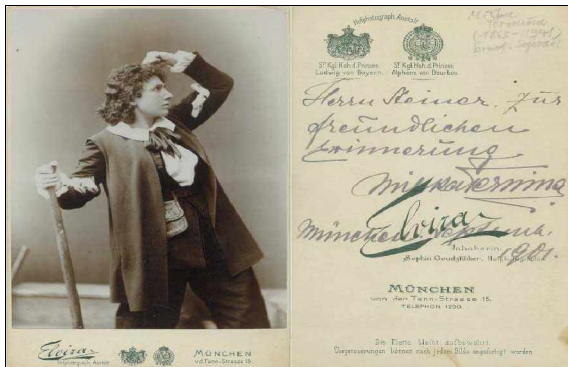 Elvira
Hofphotograph. Anstalt
MÜNCHEN
v.d.Tann-Strasse 15.
Hofphotograph. Anstalt
Sr. Kgl. Hoh. d. Prinzen
Ludwig von Bayern.
Sr. Kgl. Hoh. d. Prinzen
Alphons von Bourbon.
(1863-1941)
Herrn Steiner. Zur
freundlichen
Erinnerung
Milka Ternina
Elvira
München
1901.
Inhaberin:
Sophia Goudstikker,
MÜNCHEN
von der Tann-Strasse 15.
TELEPHON 1200.
Die Platte bleibt aufbewahrt.
Vergrösserungen können nach jedem Bilde angefertigt werden.